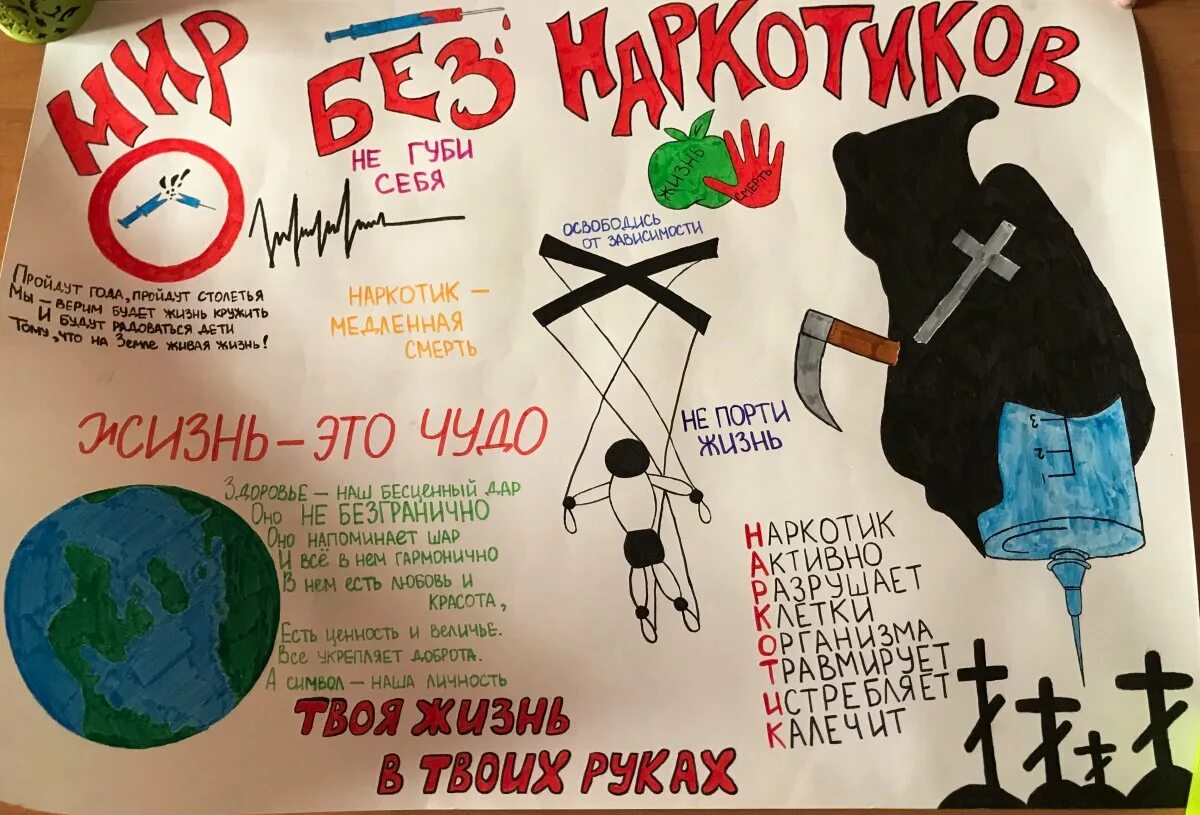 МИР БЕЗ НАРКОТИКОВ
НЕ ГУБИ
СЕБЯ
ЖИЗНЬ
СМЕРТЬ
ОСВОБОДИСЬ
ОТ ЗАВИСИМОСТИ
Пройдут года, пройдут столетья
Мы – верим будет жизнь кружить
И будут радоваться дети
Тому, что на Земле живая жизнь!
НАРКОТИК –
МЕДЛЕННАЯ
СМЕРТЬ
ЖИЗНЬ – ЭТО ЧУДО
НЕ ПОРТИ
ЖИЗНЬ
Здоровье – наш бесценный дар
Оно НЕ БЕЗГРАНИЧНО
Оно напоминает шар
И всё в нем гармонично
В нем есть любовь и
красота,
Есть ценность и величье.
Все укрепляет доброта.
А символ – наша личность
НАРКОТИК
АКТИВНО
РАЗРУШАЕТ
КЛЕТКИ
ОРГАНИЗМА
ТРАВМИРУЕТ
ИСТРЕБЛЯЕТ
КАЛЕЧИТ
3
2
ТВОЯ ЖИЗНЬ
В ТВОИХ РУКАХ